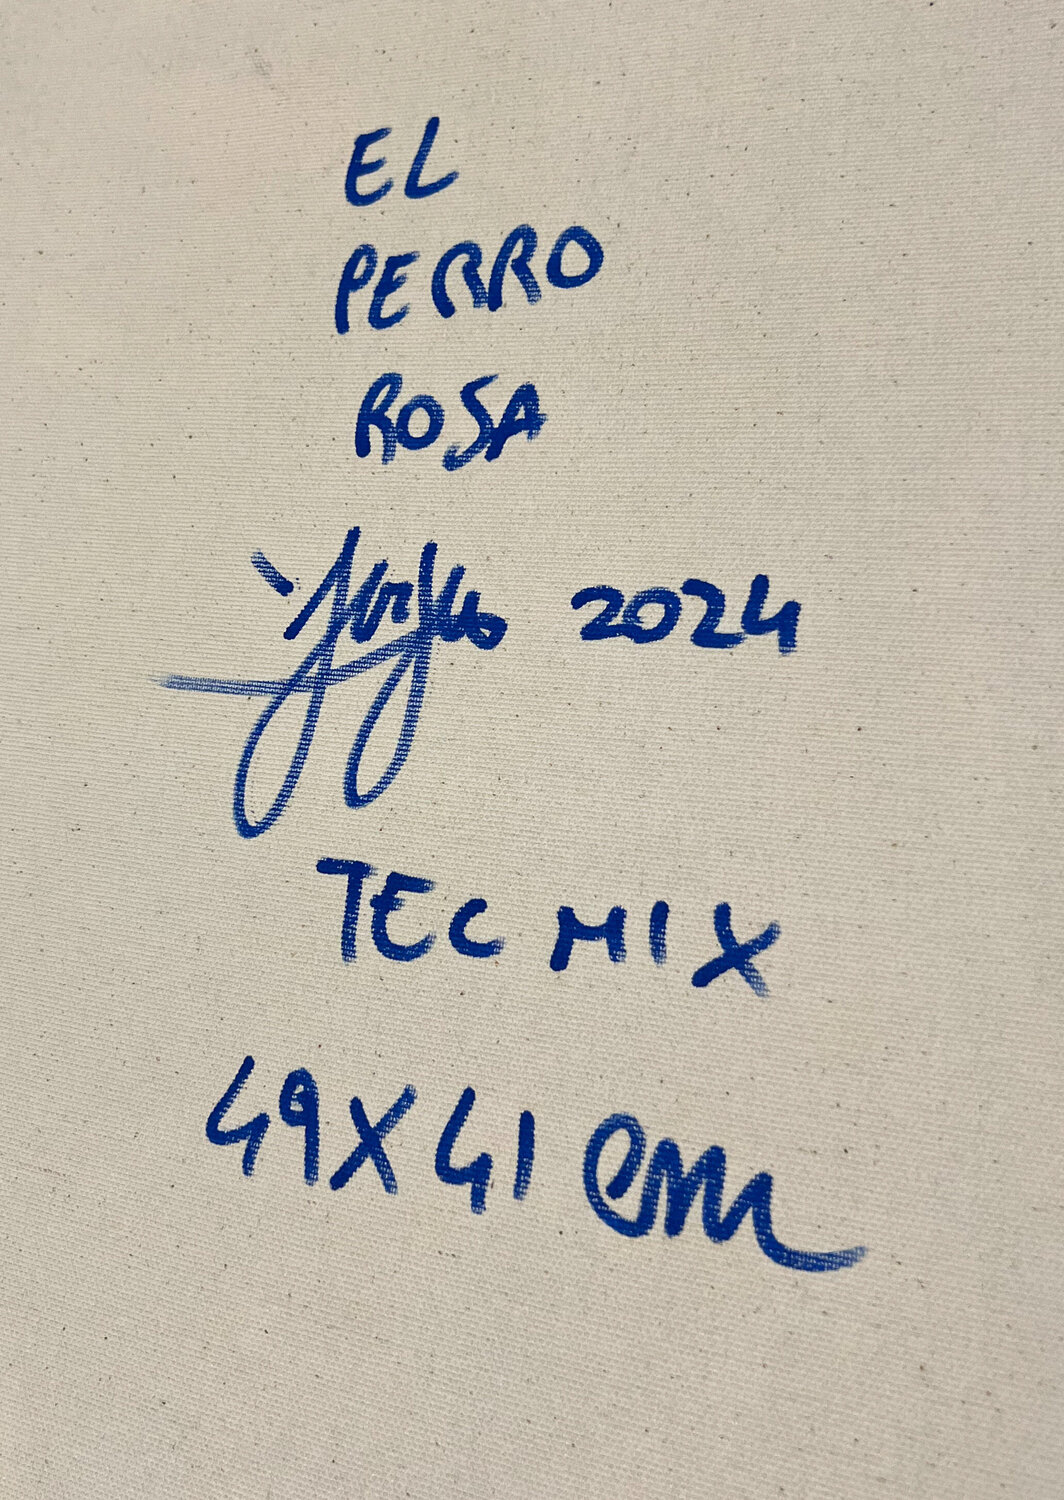 EL
PERRO
ROSA
2024
TEC MIX
49X41 cm